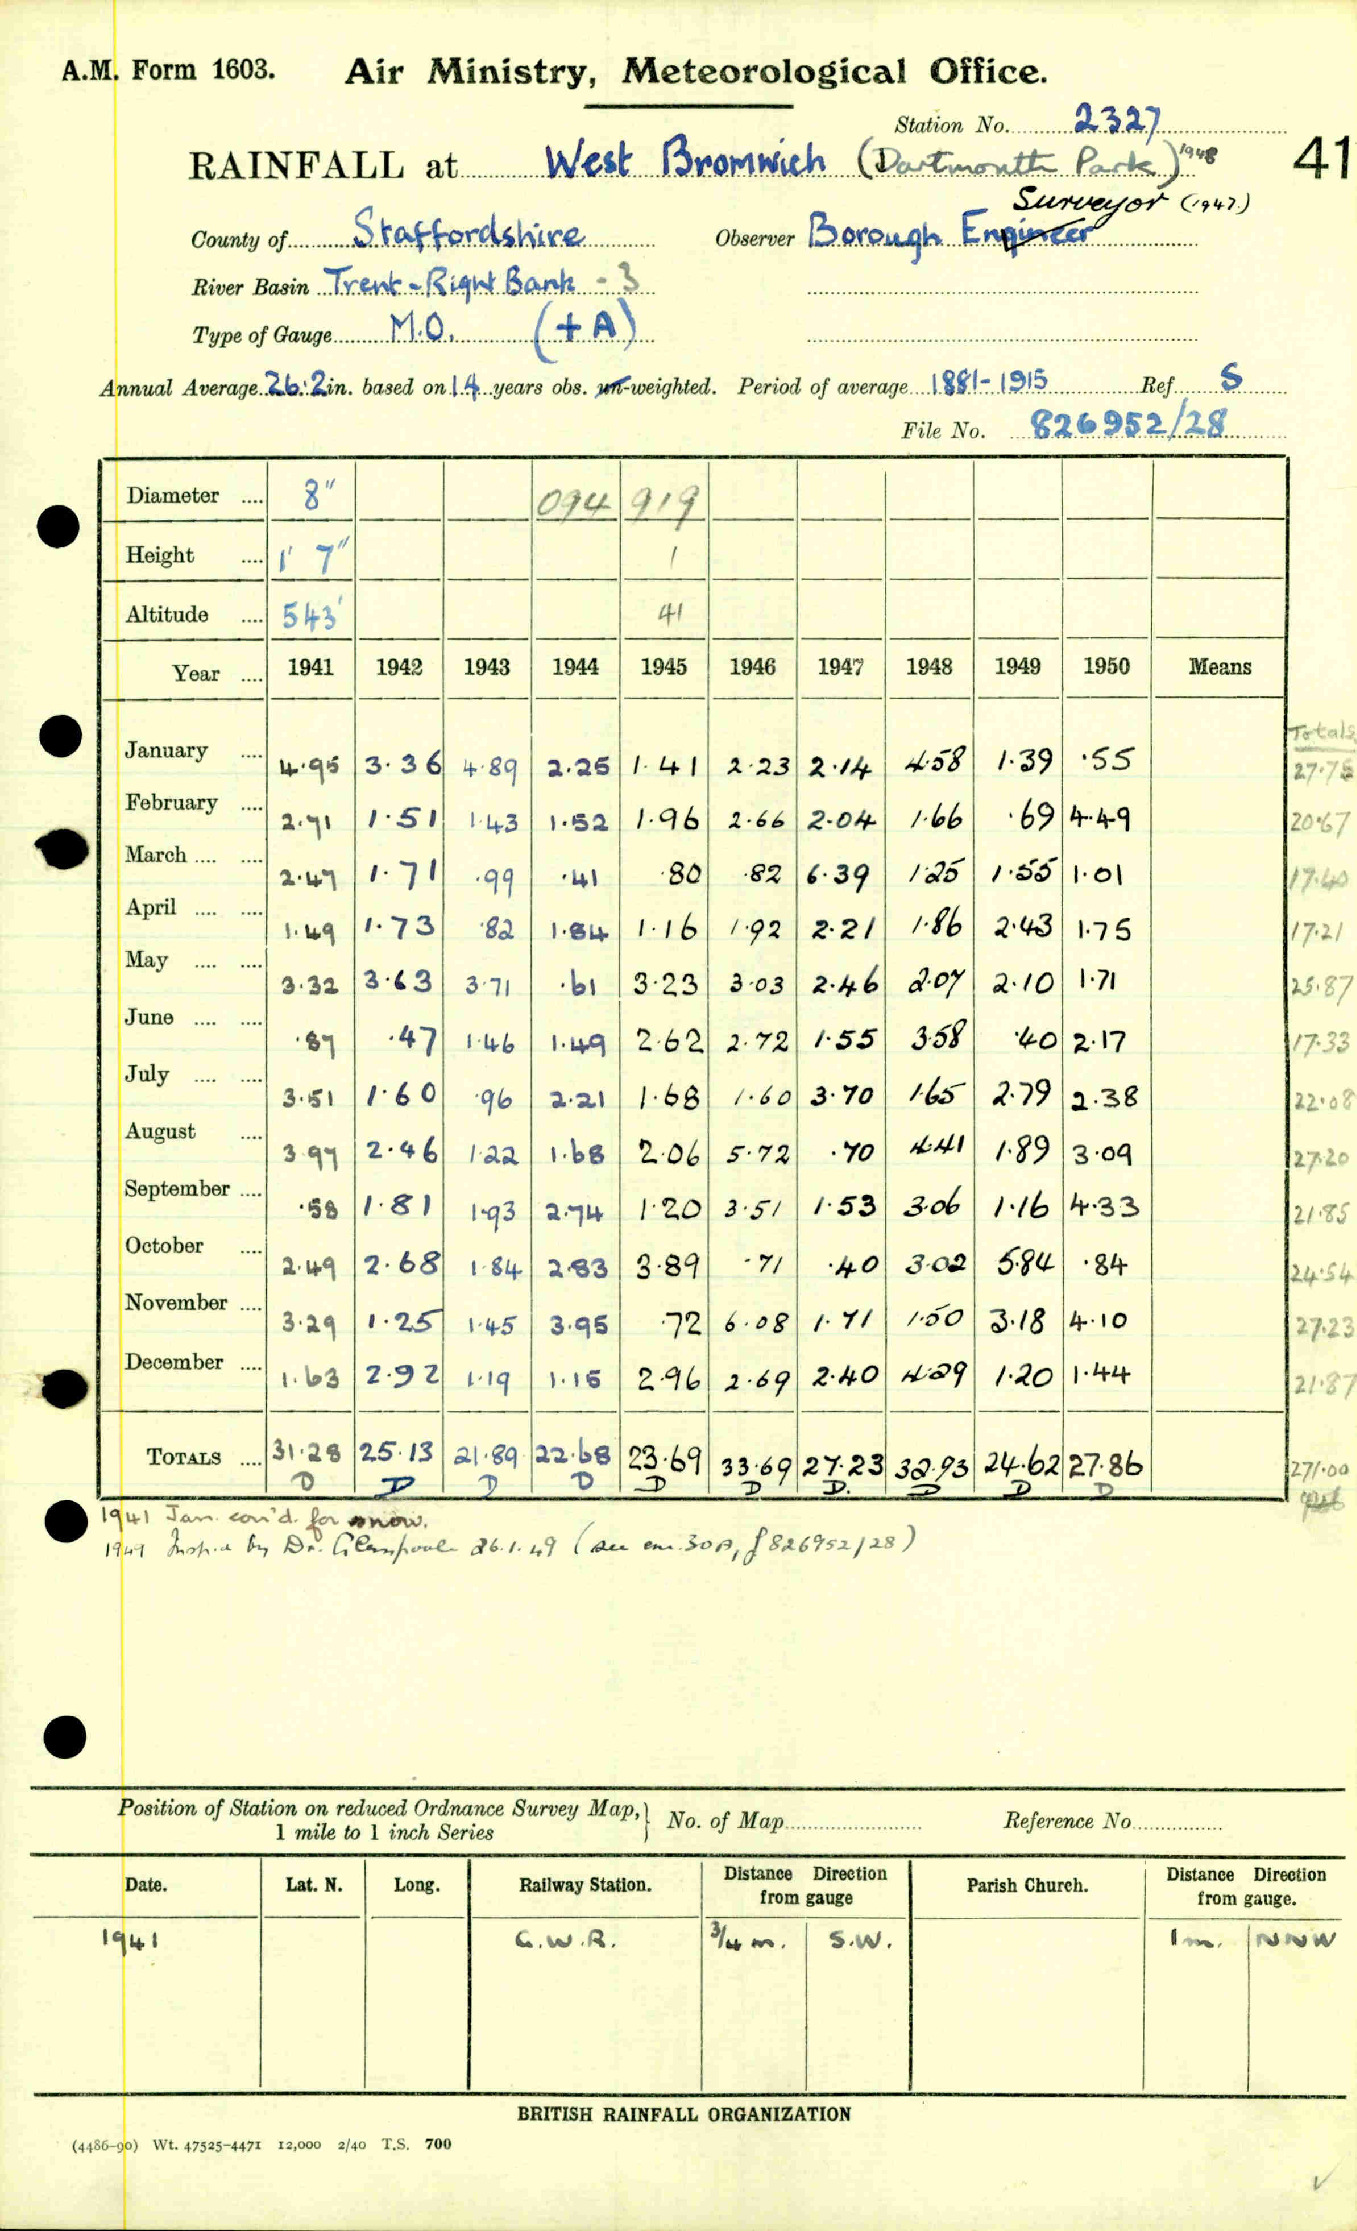 A.M. Form 1603. Air Ministry, Meteorological Office.
Station No. 2327
RAINFALL at West Bromwich (Dartmouth Park) 1948 41
Surveyor (1947.)
County of Staffordshire Observer Borough Engineer
River Basin Trent - Right Bank - 3
Type of Gauge M.O. (+A)
Annual Average 26.2 in. based on 14 years obs. un-weighted. Period of average 1881-1915 Ref. S
File No. 826952/28
Diameter .... 8" 094 919
Height .... 1' 7" 1
Altitude .... 543' 41
Year .... 1941 1942 1943 1944 1945 1946 1947 1948 1949 1950 Means
Totals
January .... 4.95 3.36 4.89 2.25 1.41 2.23 2.14 4.58 1.39 .55 27.75
February .... 2.71 1.51 1.43 1.52 1.96 2.66 2.04 1.66 .69 4.49 20.67
March .... .... 2.47 1.71 .99 .41 .80 .82 6.39 1.25 1.55 1.01 17.40
April .... .... 1.49 1.73 .82 1.84 1.16 1.92 2.21 1.86 2.43 1.75 17.21
May .... .... 3.32 3.63 3.71 .61 3.23 3.03 2.46 2.07 2.10 1.71 25.87
June .... .... .87 .47 1.46 1.49 2.62 2.72 1.55 3.58 .40 2.17 17.33
July .... .... 3.51 1.60 .96 2.21 1.68 1.60 3.70 1.65 2.79 2.38 22.08
August .... 3.97 2.46 1.22 1.68 2.06 5.72 .70 4.41 1.89 3.09 27.20
September .... .58 1.81 1.93 2.74 1.20 3.51 1.53 3.06 1.16 4.33 21.85
October .... 2.49 2.68 1.84 2.83 3.89 .71 .40 3.02 5.84 .84 24.54
November .... 3.29 1.25 1.45 3.95 .72 6.08 1.71 1.50 3.18 4.10 27.23
December .... 1.63 2.92 1.19 1.15 2.96 2.69 2.40 4.29 1.20 1.44 21.87
TOTALS .... 31.28 25.13 21.89 22.68 23.69 33.69 27.23 32.93 24.62 27.86 271.00
D D D D D D D. D D D
1941 Jan. cor'd. for snow.
1949 Insp.d by Dr. Glasspoole 26.1.49 (see enc. 30A, f 826952/28)
Position of Station on reduced Ordnance Survey Map, } No. of Map Reference No.
1 mile to 1 inch Series
Date. Lat. N. Long. Railway Station. Distance Direction from gauge Parish Church. Distance Direction from gauge.
1941 G.W.R. ¾ m. S.W. 1 m. NNW
BRITISH RAINFALL ORGANIZATION
(4486-90) Wt. 47525-4471 12,000 2/40 T.S. 700